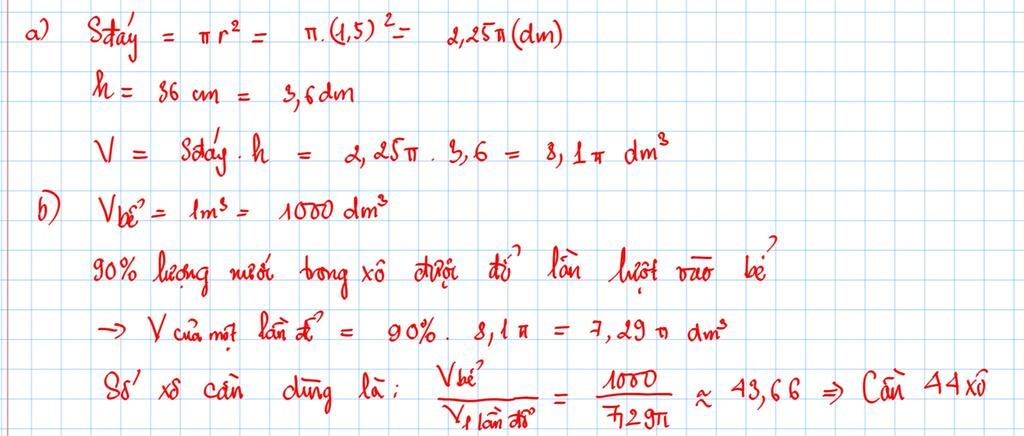 a) Sđáy = πr² = π.(1,5)² = 2,25π (dm)
h = 36 cm = 3,6dm
V = Sđáy.h = 2,25π . 3,6 = 8,1π dm³
b) Vbể = 1m³ = 1000 dm³
90% lượng nước trong xô được đổ lần lượt vào bể
→ V của một lần đổ = 90% . 8,1π = 7,29π dm³
Số xô cần dùng là: Vbể / V1 lần đổ = 1000 / 7,29π ≈ 43,66 ⇒ Cần 44 xô